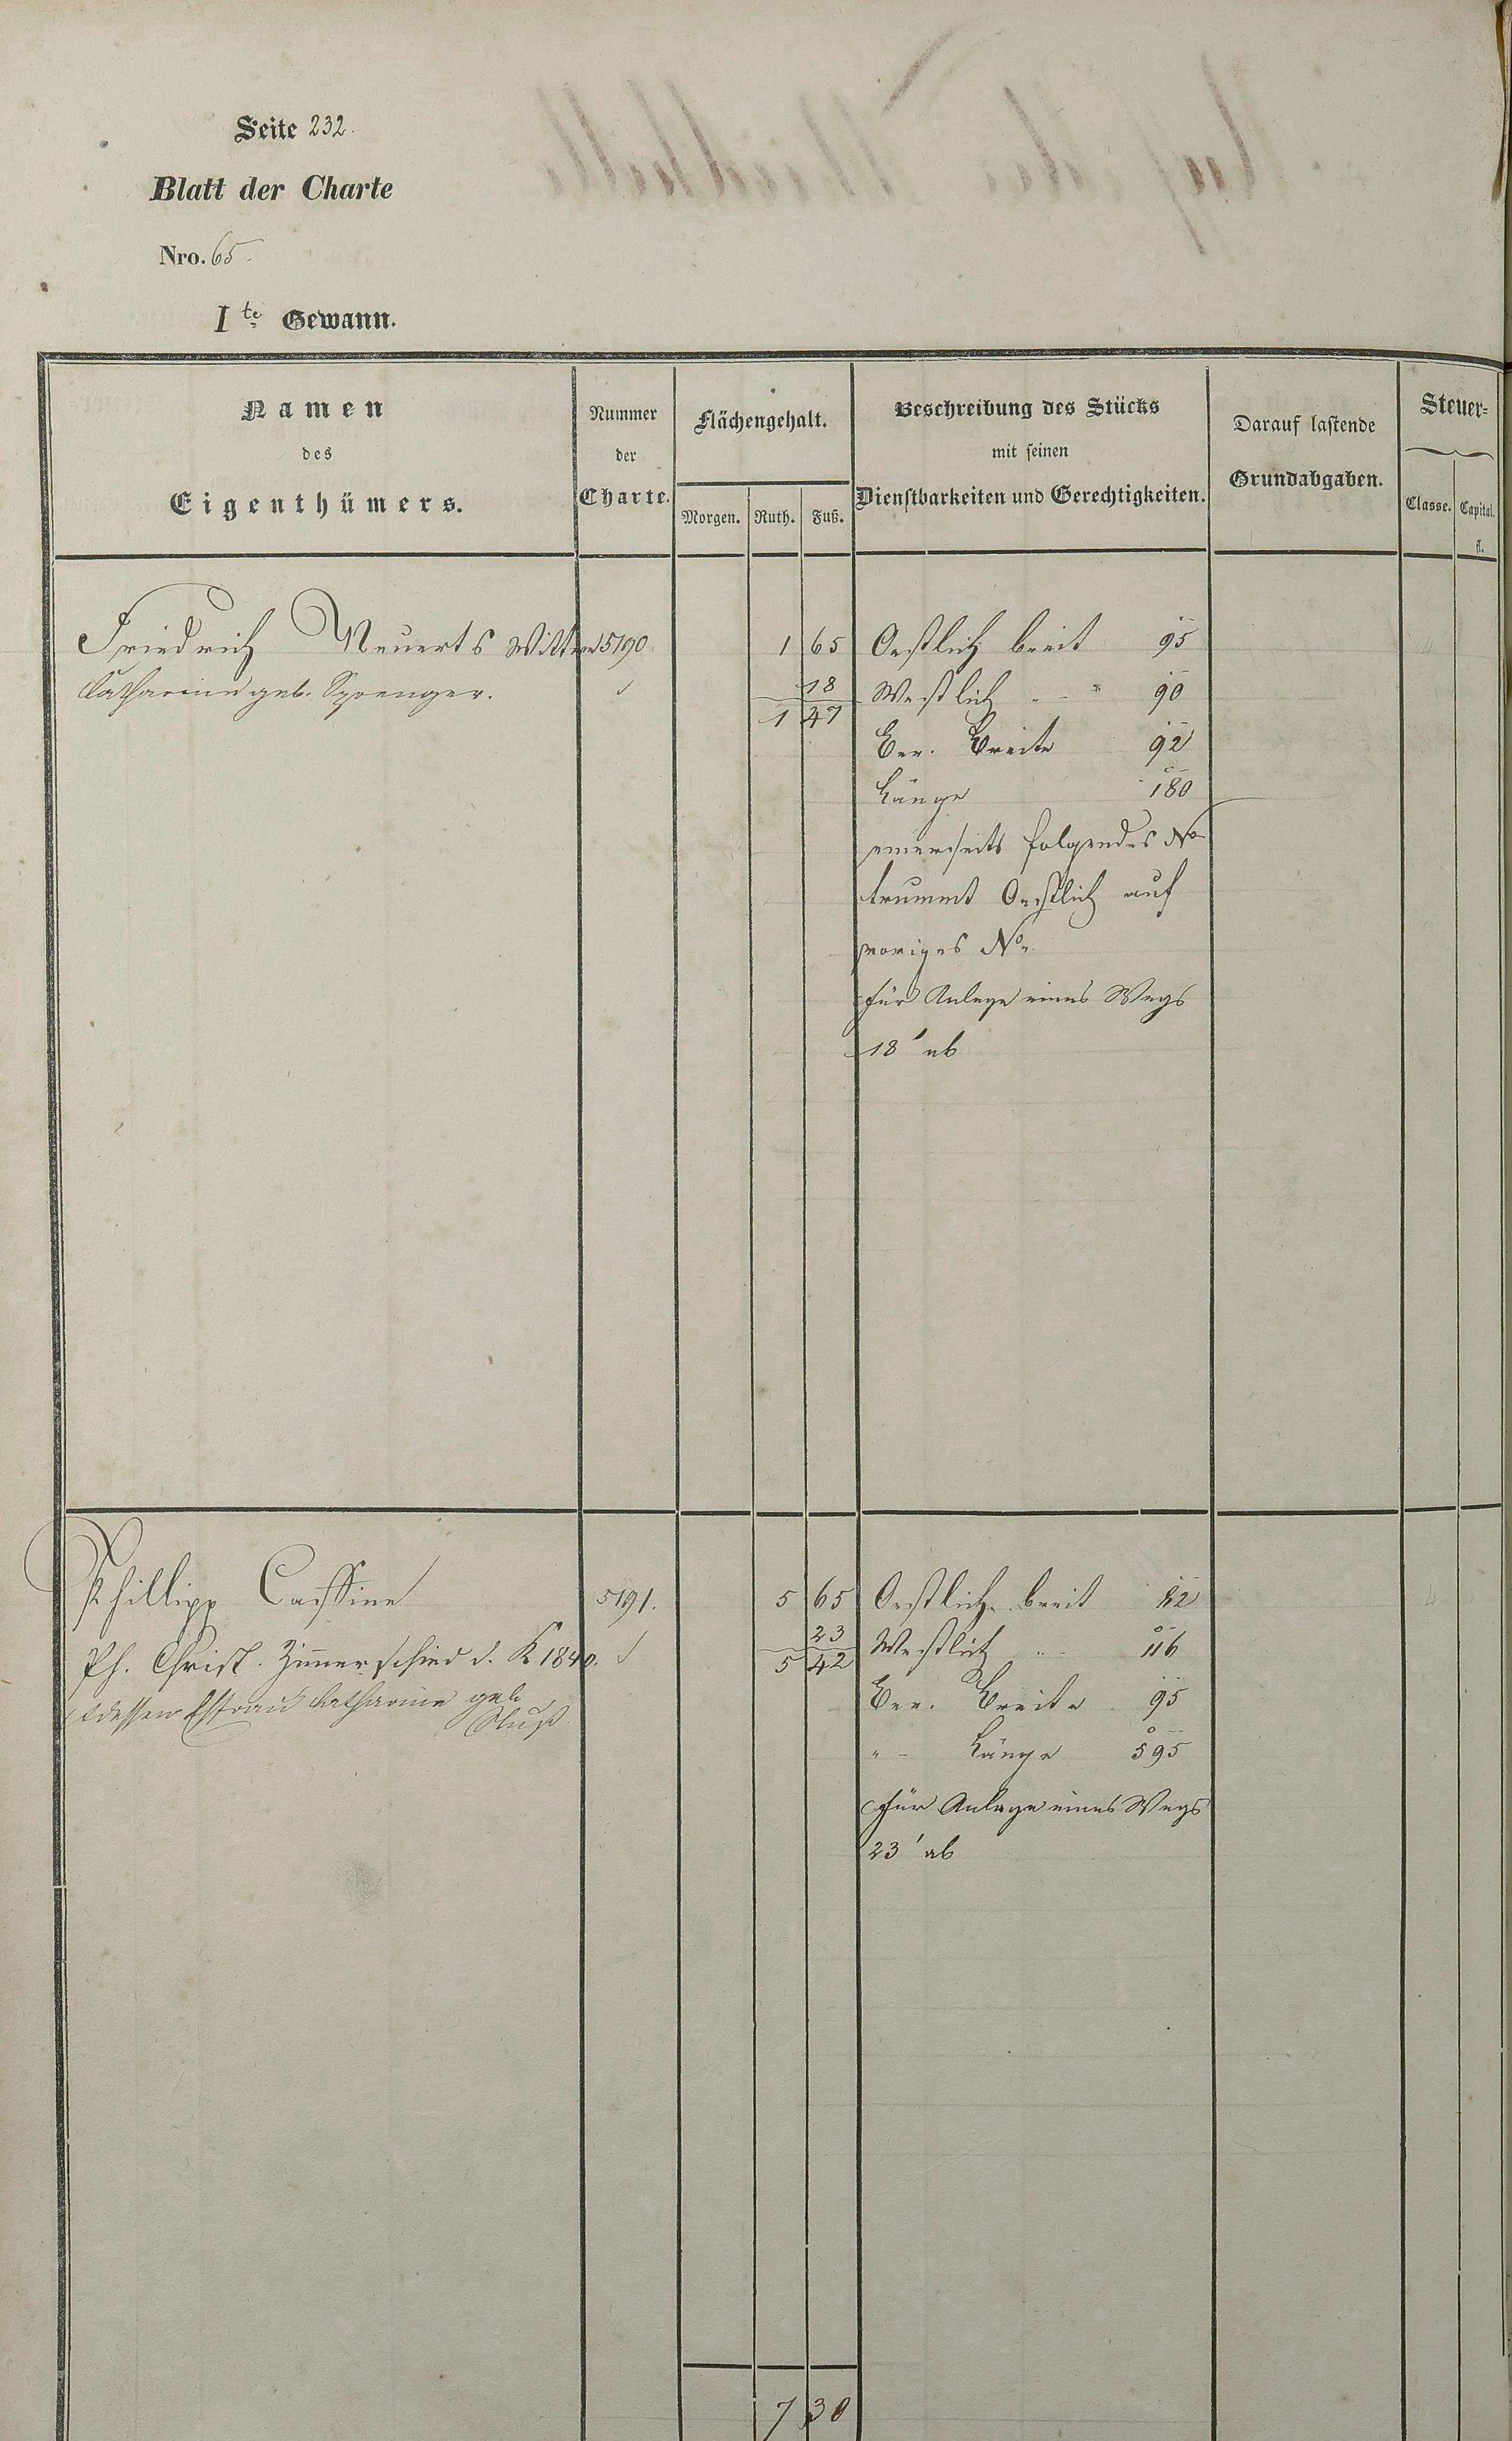 Seite 232.
Blatt der Charte
Nro. 65.
I te Gewann.
Namen
des
Eigenthümers.
Nummer
der
Charte.
Flächengehalt.
Morgen. Ruth. Fuß.
Beschreibung des Stücks
mit seinen
Dienstbarkeiten und Gerechtigkeiten.
Darauf lastende
Grundabgaben.
Steuer=
Classe. Capital.
fl.
Friedrich Neuerts Wittwe 5190 1 65 Oestlich breit 95
Catharina geb. Sprenger. 18 Westlich " 90
1 47
Ver. Breite 92
Länge 180
einerseits folgendes No
trummt Oestlich auf
voriges No.
für Anlage eines Wegs
18' ab
Phillipp Cassine 5191. 5 65 Oestlich breit 82
23 Westlich " 116
Ph. Christ. Zimmerschied d. K 1840. 5 42
Ver. Breite 95
dessen Ehefrau Catharine geb.
" Länge 595
für Anlage eines Wegs
23' ab
7 30